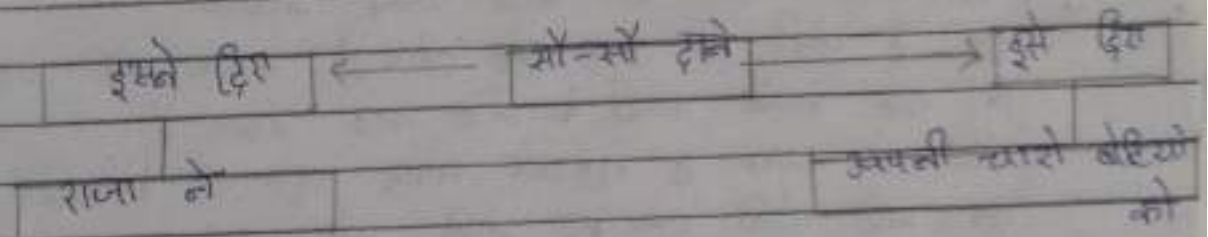 इसने दिए ← सौ-सौ दाने → इसे दिए
राजा ने अपनी चारो बेटियो
को